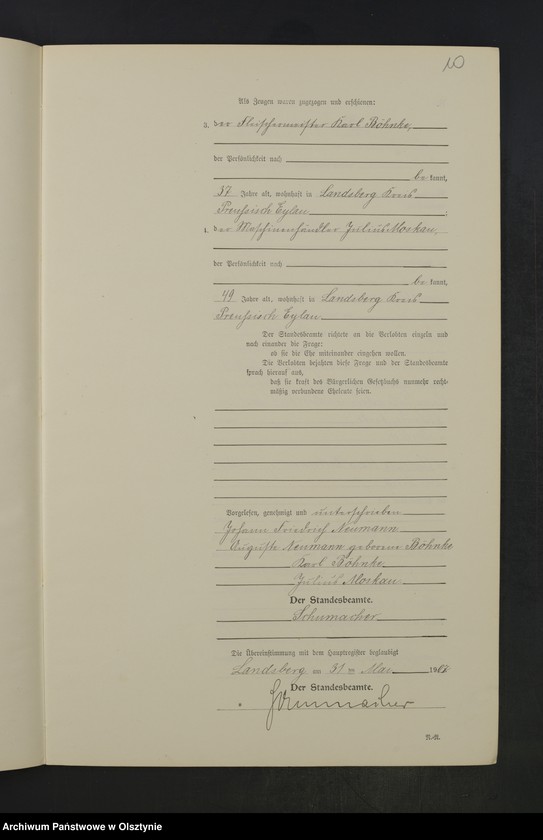 10
Als Zeugen waren zugezogen und erschienen:
3. der Fleischermeister Karl Böhnke,
der Persönlichkeit nach
be kannt,
57 Jahre alt, wohnhaft in Landsberg Kreis
Preußisch Eylau
4. der Maschinenhändler Julius Moskau,
der Persönlichkeit nach
be kannt,
49 Jahre alt, wohnhaft in Landsberg Kreis
Preußisch Eylau
Der Standesbeamte richtete an die Verlobten einzeln und
nach einander die Frage:
ob sie die Ehe miteinander eingehen wollen.
Die Verlobten bejahten diese Frage und der Standesbeamte
sprach hierauf aus,
daß sie kraft des Bürgerlichen Gesetzbuchs nunmehr recht-
mäßig verbundene Eheleute seien.
Vorgelesen, genehmigt und unterschrieben
Johann Friedrich Neumann
Auguste Neumann geborene Böhnke
Karl Böhnke
Julius Moskau
Der Standesbeamte.
Schumacher
Die Übereinstimmung mit dem Hauptregister beglaubigt
Landsberg am 31 ten Mai 19
Der Standesbeamte.
Schumacher
Archiwum Państwowe w Olsztynie